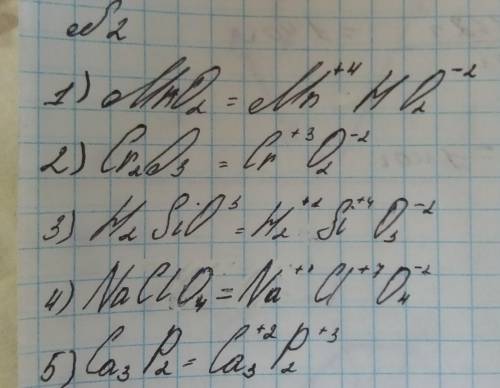 №2
1) MnO₂ = Mn⁺⁴ H O₂⁻²
2) Cr₂O₃ = Cr⁺³ O₂⁻²
3) H₂SiO³ = H₂⁺² Si⁺⁴ O₃⁻²
4) NaClO₄ = Na⁺¹ Cl⁺⁷ O₄⁻²
5) Ca₃P₂ = Ca₃⁺² P₂⁺³